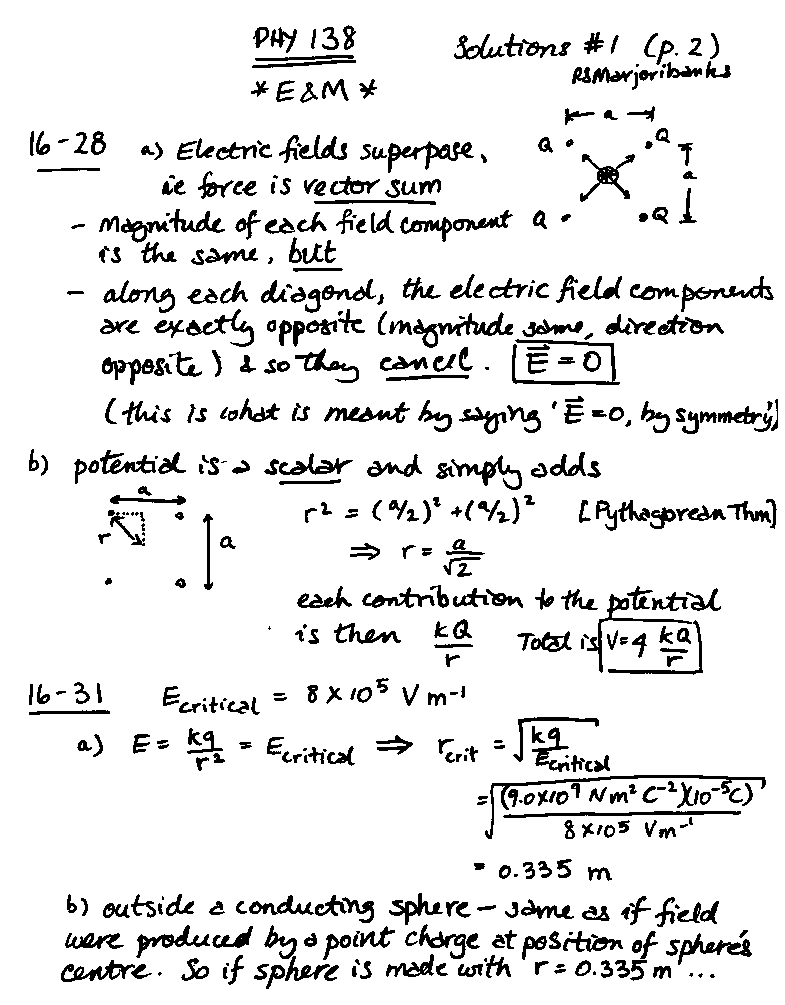 PHY 138
Solutions #1 (p. 2)
RSMarjoribanks
* E & M *
16-28 a) Electric fields superpose,
ie force is vector sum
a
Q Q
a
Q Q
- Magnitude of each field component
is the same, but
- along each diagonal, the electric field components
are exactly opposite (magnitude same, direction
opposite) & so they cancel. E⃗ = 0
(this is what is meant by saying 'E⃗ = 0, by symmetry')
b) potential is a scalar and simply adds
a
r
a
r² = (a/2)² + (a/2)² [Pythagorean Thm]
⇒ r = a/√2
each contribution to the potential
is then kQ/r Total is V = 4 kQ/r
16-31 E critical = 8 × 10⁵ V m⁻¹
a) E = kq/r² = E critical ⇒ r crit = √(kq/E critical)
= √((9.0×10⁹ N m² C⁻²)(10⁻⁵ C)/8×10⁵ V m⁻¹)
= 0.335 m
b) outside a conducting sphere – same as if field
were produced by a point charge at position of sphere's
centre. So if sphere is made with r = 0.335 m ...